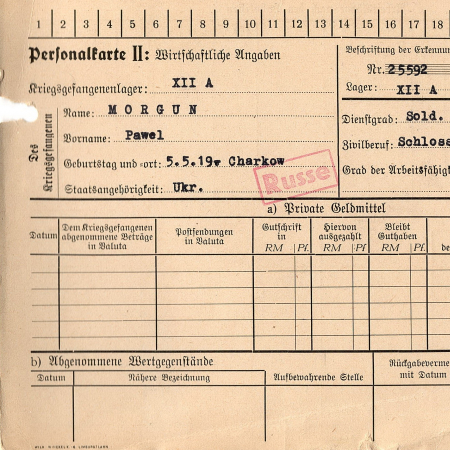 1 2 3 4 5 6 7 8 9 10 11 12 13 14 15 16 17 18
Personalkarte II: Wirtschaftliche Angaben
Beschriftung der Erkennun
Kriegsgefangenenlager: XII A
Nr. 25592
Lager: XII A
Des Kriegsgefangenen
Name: MORGUN
Dienstgrad: Sold.
Vorname: Pawel
Zivilberuf: Schloss
Geburtstag und -ort: 5.5.19 Charkow
Grad der Arbeitsfähig
Staatsangehörigkeit: Ukr.
Russe
a) Private Geldmittel
Datum
Dem Kriegsgefangenen
abgenommene Beträge
in Valuta
Postsendungen
in Valuta
Gutschrift
in
RM Pf.
Hiervon
ausgezahlt
RM Pf.
Bleibt
Guthaben
RM Pf.
b) Abgenommene Wertgegenstände
Rückgabeverme
mit Datum
Datum
Nähere Bezeichnung
Aufbewahrende Stelle